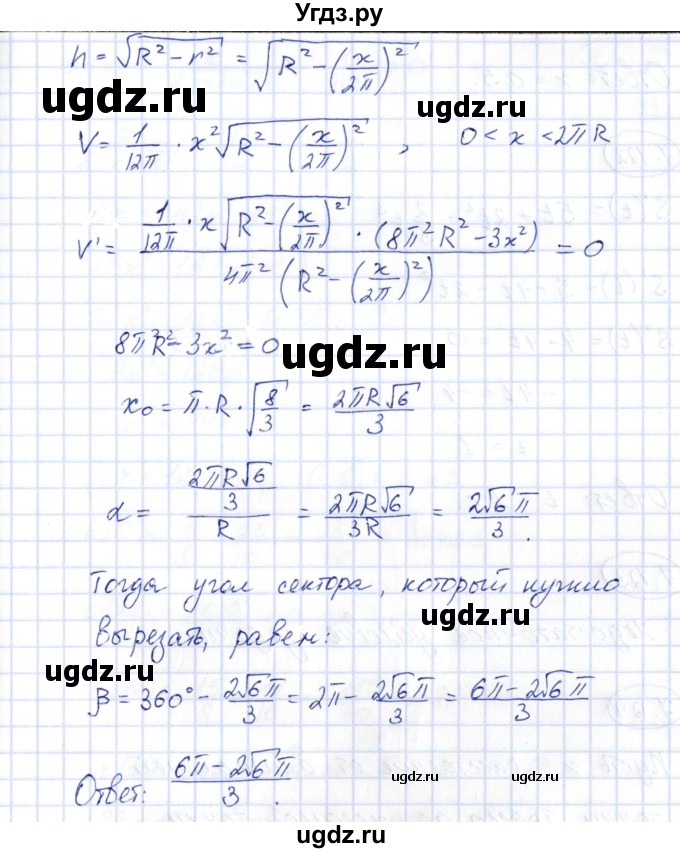 Угдз.ру
h = √(R² − r²) = √(R² − (x/2π)²)
ugdz.ru ugdz.ru
V = 1/12π · x² √(R² − (x/2π)²) , 0 < x < 2πR
V' = (1/12π · x √(R² − (x/2π)²) · (8π²R² − 3x²)) / (4π² (R² − (x/2π)²)) = 0
8π²R² − 3x² = 0
ugdz.ru
x₀ = π · R · √(8/3) = 2πR√6/3
α = (2πR√6/3)/R = 2πR√6/3R = 2√6π/3.
Тогда угол сектора, который нужно
ugdz.ru
вырезать, равен:
ugdz.ru
β = 360° − 2√6π/3 = 2π − 2√6π/3 = (6π − 2√6π)/3
Ответ: (6π − 2√6π)/3.
ugdz.ru
ugdz.ru